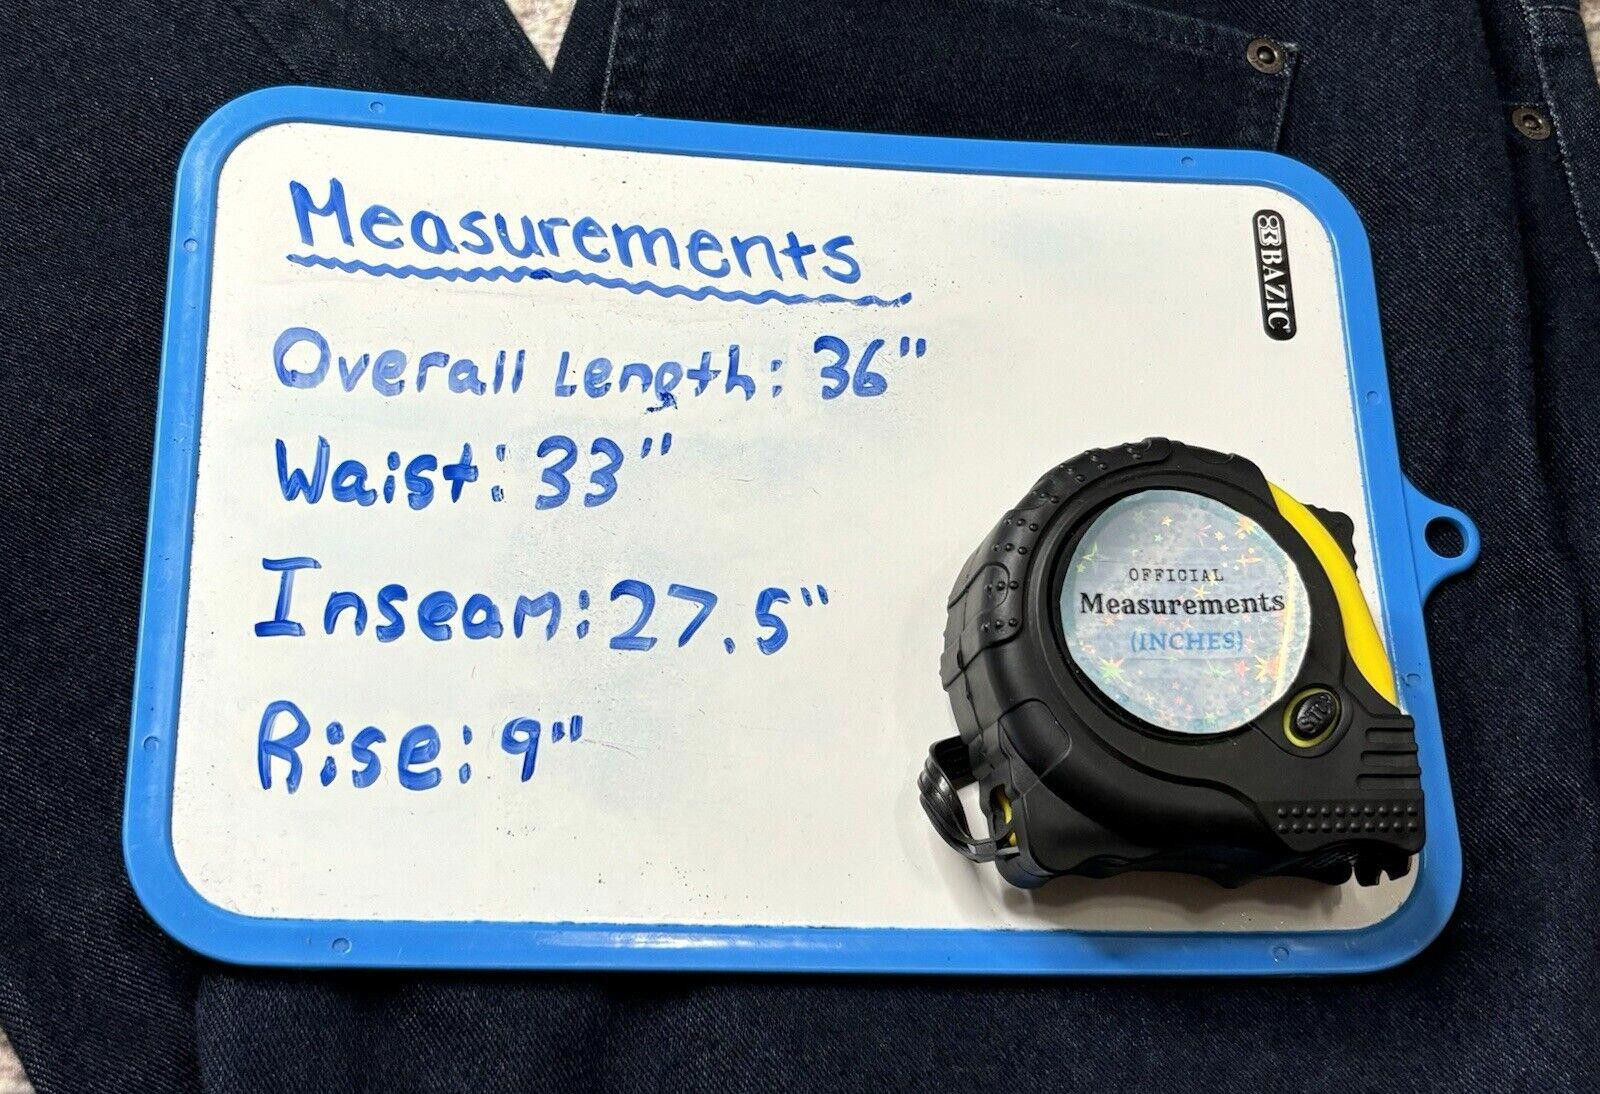 Measurements
Overall Length: 36"
Waist: 33"
Inseam: 27.5"
Rise: 9"
BAZIC
OFFICIAL
Measurements
(INCHES)